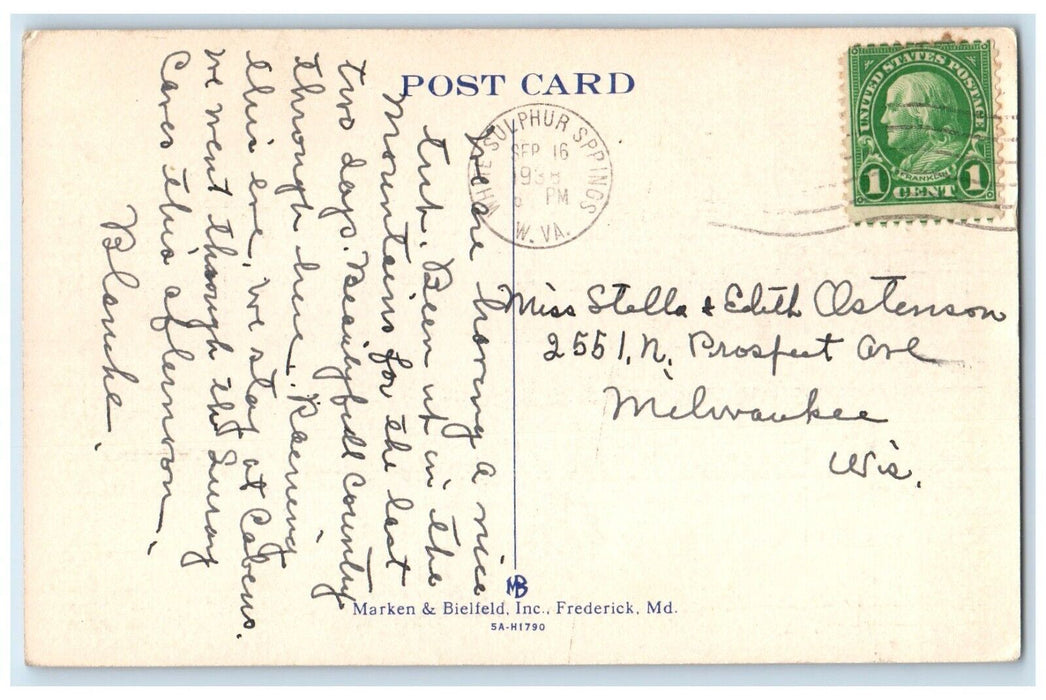 POST CARD
WHITE SULPHUR SPRINGS
SEP 16
1938
PM
W. VA.
UNITED STATES POSTAGE
FRANKLIN
1 CENT 1
We are having a nice
trip. Been up in the
Mountains for the last
two days. Beautyful Country
through here. Raening
this eve, we stay at Cabens.
we went through the Luray
Caves this afternoon
Blanche.
Miss Stella & Edith Ostenson
2551, N. Prospect Ave
Milwaukee
Wis.
MB
Marken & Bielfeld, Inc., Frederick, Md.
5A-H1790